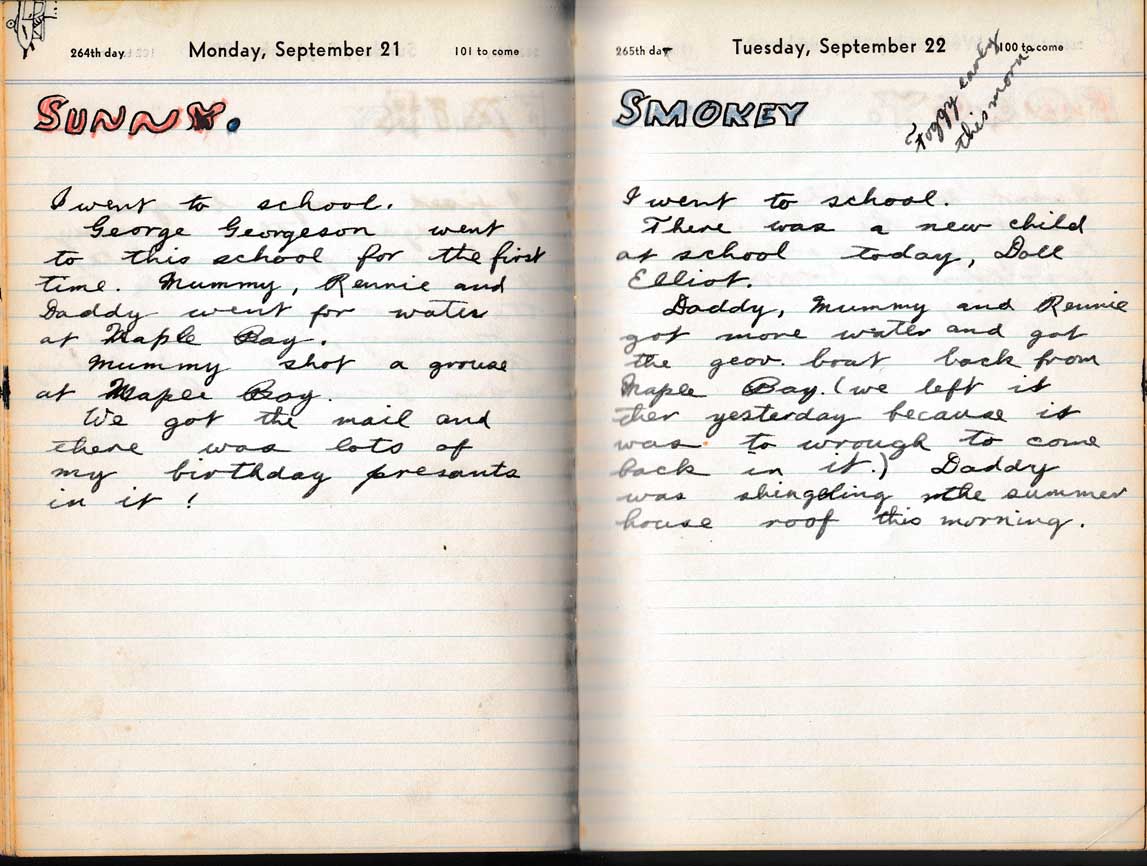 264th day Monday, September 21 101 to come
SUNNY.
I went to school.
George Georgeson went
to this school for the first
time. Mummy, Rennie and
Daddy went for water
at Maple Bay.
Mummy shot a grouse
at Maple Bay.
We got the mail and
there was lots of
my birthday presants
in it !
265th day Tuesday, September 22 100 to come
Foggy early
this morn.
SMOKEY
I went to school.
There was a new child
at school today, Doll
Elliot.
Daddy, Mummy and Rennie
got more water and got
the geov. boat back from
Maple Bay. (we left it
ther yesterday because it
was to wrough to come
back in it.) Daddy
was shingling the summer
house roof this morning.